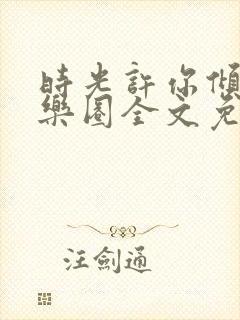 時光許你傾
樂園全文免
汪劍通